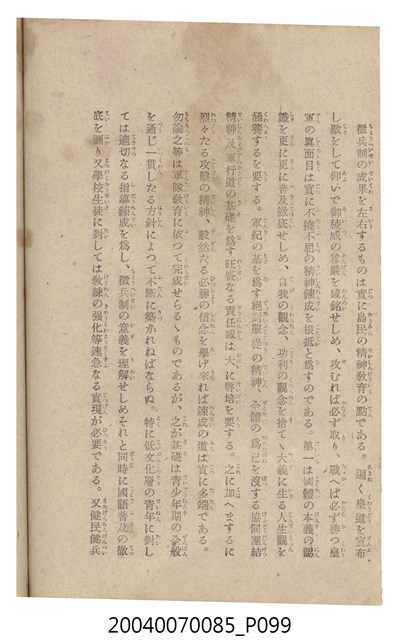 徴兵制の成果を左右するものは實に島民の精神教育の點である。遍く皇道を宣布
し歡をして仰いで御稜威の尊嚴を感銘せしめ、攻むれば必ず取り、戰へば必ず勝つ皇
軍の眞面目は實に不撓不屈の精神錬成を根抵と爲すのである。第一は國體の本義の認
識を更に更に普及徹底せしめ、自我の觀念、功利の觀念を捨てゝ大義に生る人生觀を
涵養するを要する。軍紀の基を爲す絕對服從の精神、全體の爲己を沒する協同團結
精神及軍行道の基礎を爲す旺盛なる責任感は大に啓培を要する。之に加へまするに
烈々たる攻擊の精神、毅然たる必勝の信念を擧げ來れば錬成の道は實に多端である。
勿論之等は軍隊教育に依つて完成せらるゝものであるが、之が基礎は青少年期の全般
を通じ一貫したる方針によつて不斷に築かれねばならぬ。特に低文化層の青年に對し
ては適切なる指導錬成を爲し、徴兵制の意義を理解せしめそれと同時に國語普及の徹
底を圖り又學校生徒に對しては敎練の强化等速急なる實現が必要である。又健民健兵
20040070085_P099